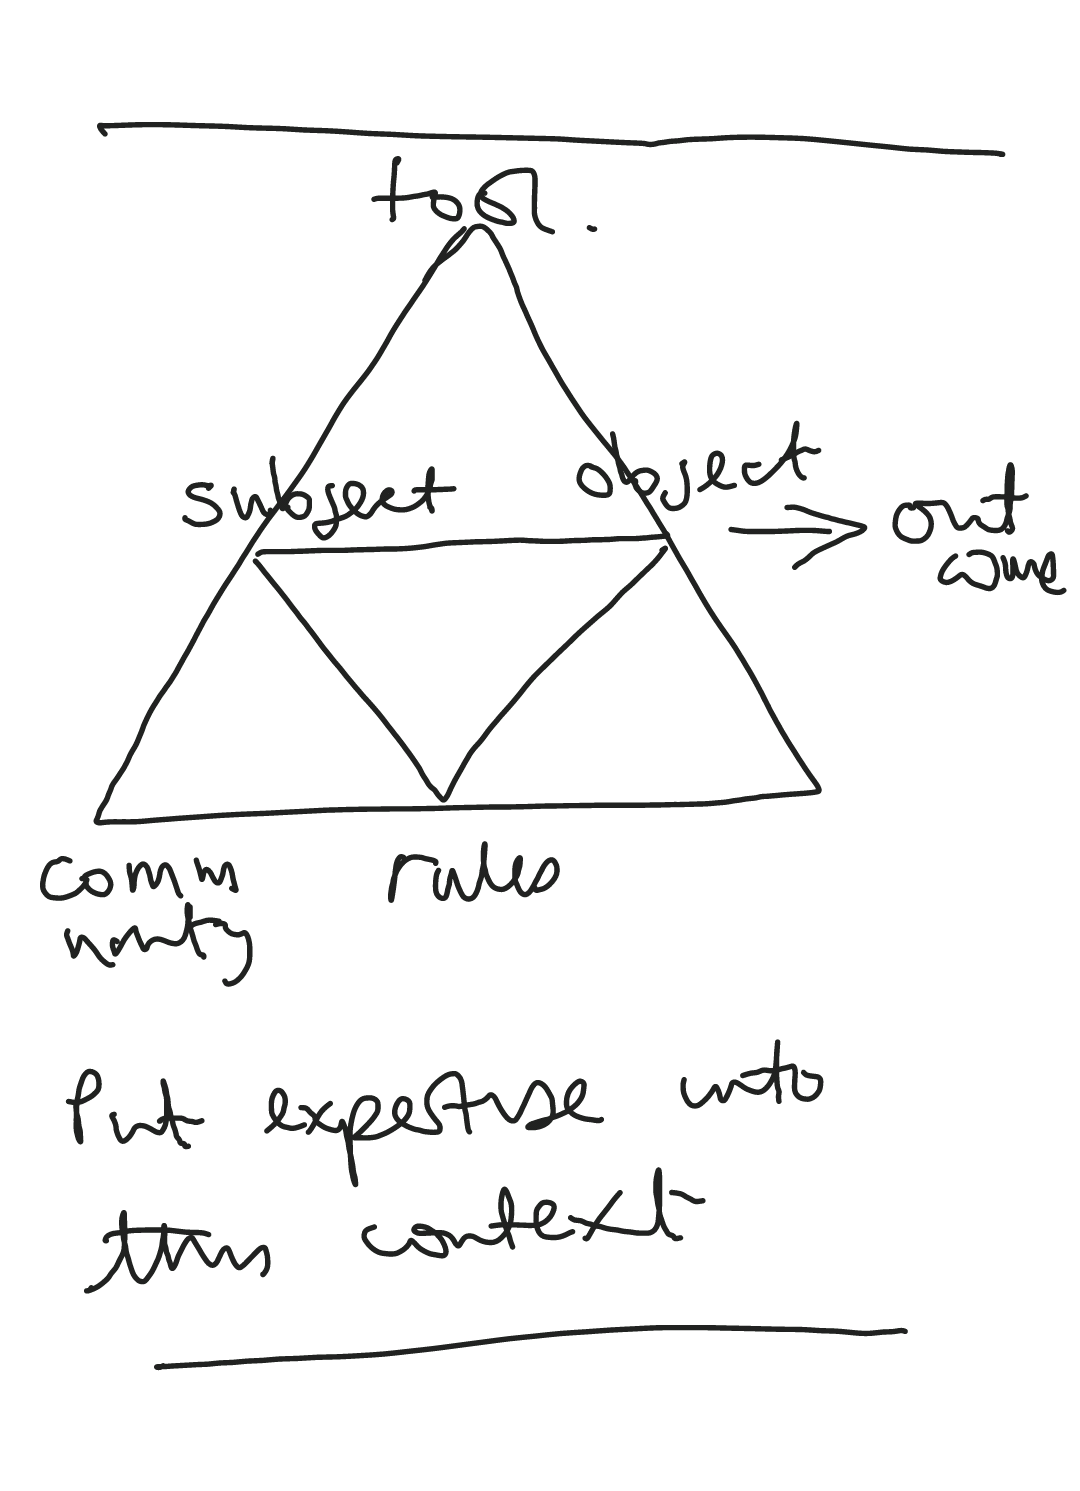 tool.
subject
object
out
come
comm
unity
rules
Put expertise into
this context